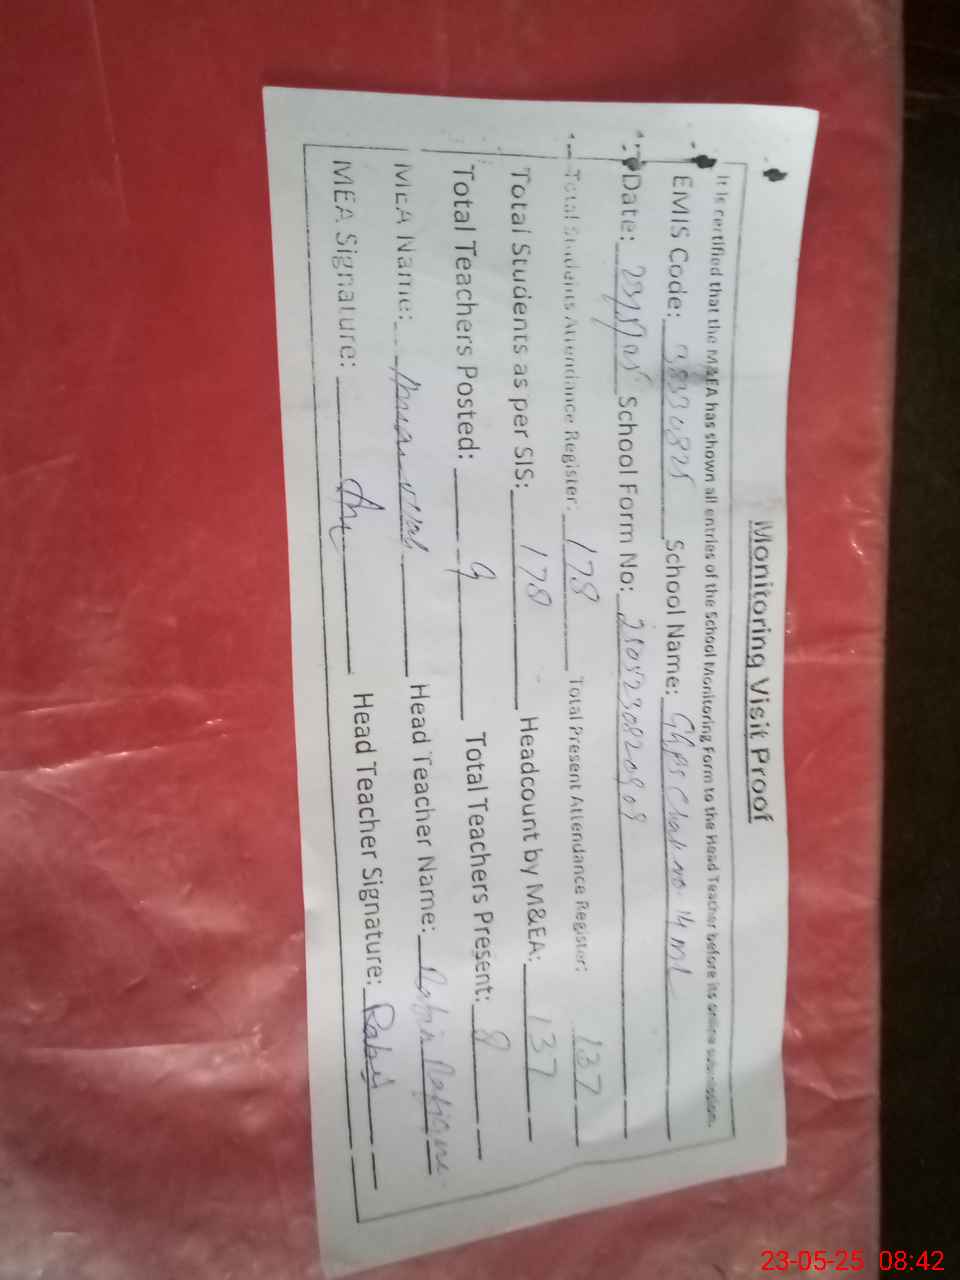 Monitoring Visit Proof
It is certified that the M&EA has shown all entries of the School Monitoring Form to the Head Teacher before its online submission.
EMIS Code: School Name: GGPS Chak no. 14 ML
Date: 23/5/25 School Form No:
Total Students Attendance Register: 178 Total Present Attendance Register: 137
Total Students as per SIS: 178 Headcount by M&EA: 137
Total Teachers Posted: 9 Total Teachers Present: 8
MEA Name: Head Teacher Name:
MEA Signature: Head Teacher Signature:
23-05-25 08:42